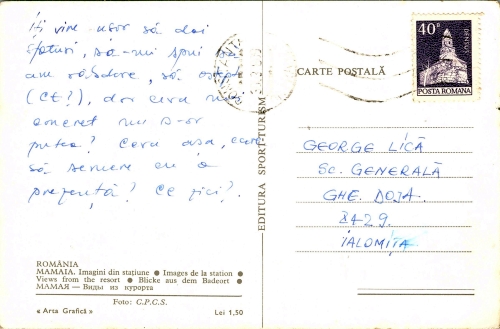 Îți vine ușor să dai
sfaturi, să-mi spui
am răbdare, să aștept
(CE?), dar ceva mai
concret nu s-ar
putea? Ceva așa, care
să semene cu o
prezență? Ce zici?
ROMÂNIA
MAMAIA. Imagini din stațiune ● Images de la station ●
Views from the resort ● Blicke aus dem Badeort ●
МАМАЯ — Виды из курорта
Foto: C.P.C.S.
« Arta Grafică » Lei 1,50
EDITURA SPORT-TURISM
CONSTANȚA
CARTE POȘTALĂ
40 B
DENSUȘ
POSTA ROMANA
GEORGE LICĂ
Sc. GENERALĂ
GHE. DOJA
8429
IALOMIȚA